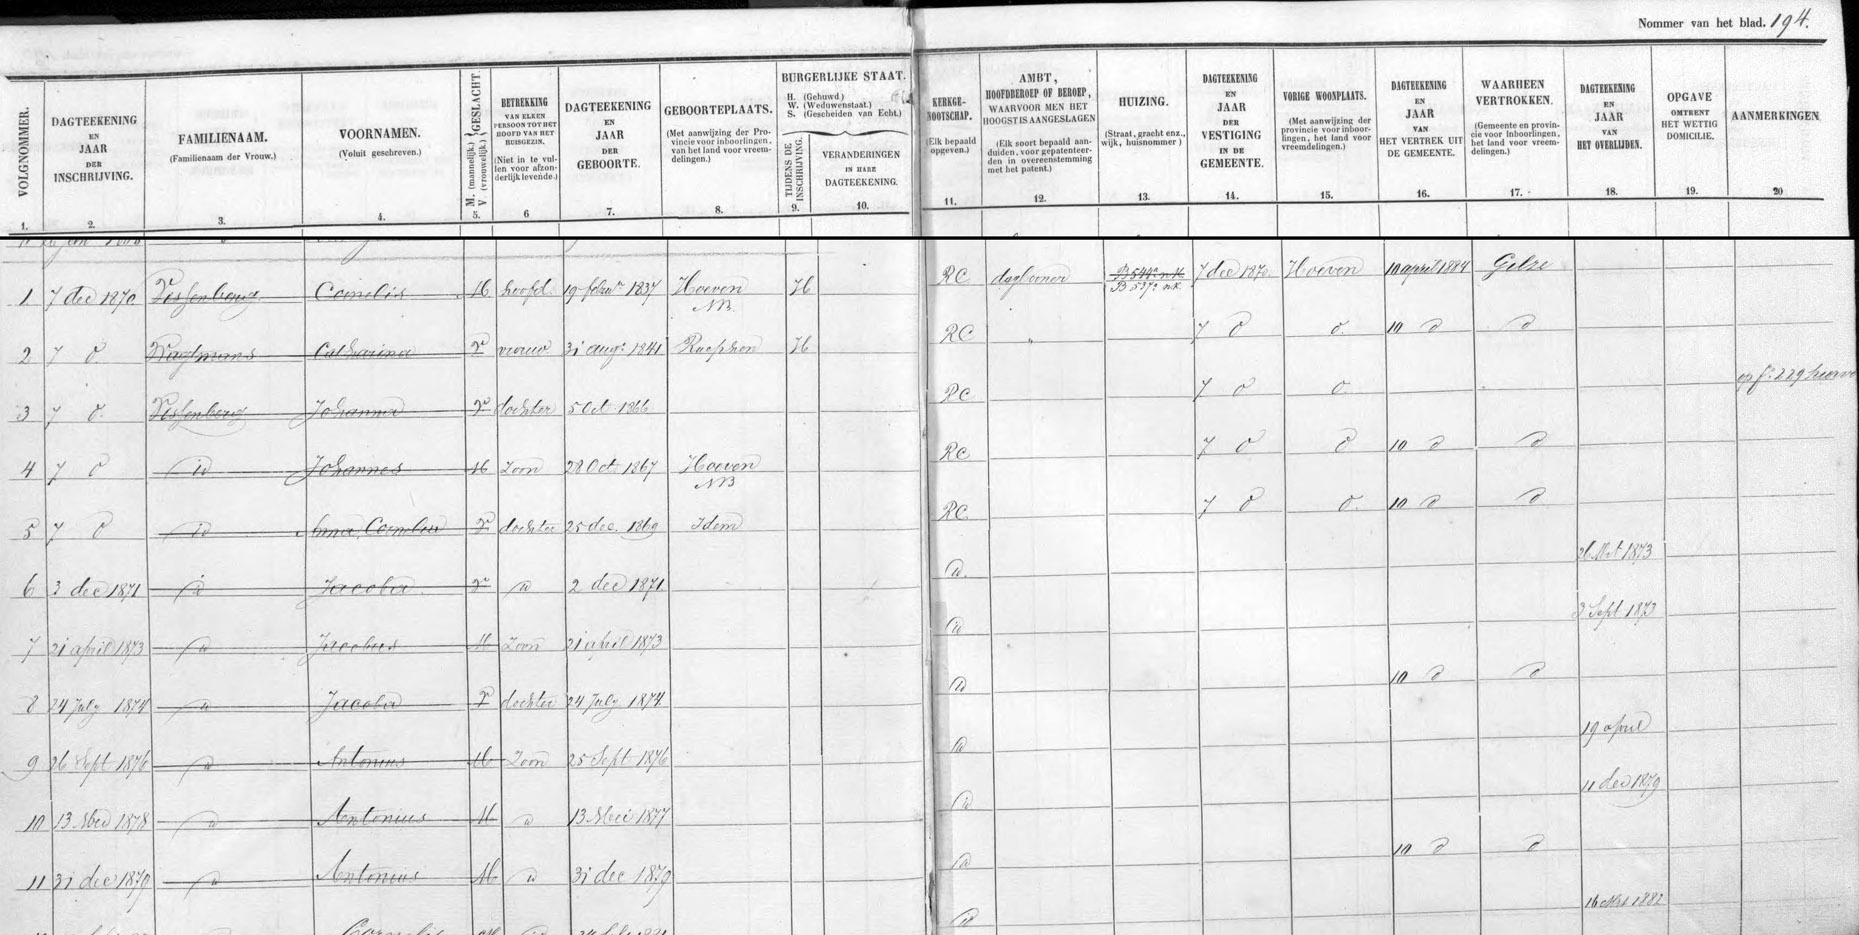 Nommer van het blad. 194.
VOLGNOMMER.
1.
DAGTEEKENING
EN
JAAR
DER
INSCHRIJVING.
2.
FAMILIENAAM.
(Familienaam der Vrouw.)
3.
VOORNAMEN.
(Voluit geschreven.)
4.
GESLACHT.
M. (mannelijk.)
V (vrouwelijk.)
5.
BETREKKING
VAN ELKEN
PERSOON TOT HET
HOOFD VAN HET
HUISGEZIN.
(Niet in te vul-
len voor afzon-
derlijk levende.)
6
DAGTEEKENING
EN
JAAR
DER
GEBOORTE.
7.
GEBOORTEPLAATS.
(Met aanwijzing der Pro-
vincie voor inboorlingen,
van het land voor vreem-
delingen.)
8.
BURGERLIJKE STAAT.
H. (Gehuwd.)
W. (Weduwenstaat.)
S. (Gescheiden van Echt.)
TIJDENS DE
INSCHRIJVING.
9.
VERANDERINGEN
IN HARE
DAGTEEKENING.
10.
KERKGE-
NOOTSCHAP.
(Elk bepaald
opgeven.)
11.
AMBT,
HOOFDBEROEP OF BEROEP,
WAARVOOR MEN HET
HOOGST IS AANGESLAGEN
(Elk soort bepaald aan-
duiden, voor gepatenteer-
den in overeenstemming
met het patent.)
12.
HUIZING.
(Straat, gracht enz.,
wijk, huisnommer)
13.
DAGTEEKENING
EN
JAAR
DER
VESTIGING
IN DE
GEMEENTE.
14.
VORIGE WOONPLAATS.
(Met aanwijzing der
provincie voor inboor-
lingen, het land voor
vreemdelingen.)
15.
DAGTEEKENING
EN
JAAR
VAN
HET VERTREK UIT
DE GEMEENTE.
16.
WAARHEEN
VERTROKKEN.
(Gemeente en provin-
cie voor inboorlingen,
het land voor vreem-
delingen.)
17.
DAGTEEKENING
EN
JAAR
VAN
HET OVERLIJDEN.
18.
OPGAVE
OMTRENT
HET WETTIG
DOMICILIE.
19.
AANMERKINGEN
20
1 7 dec 1870 Cornelis M hoofd 1837 Hoeven H RC 7 dec 1870 Hoeven 10 april 1884 Gilze
NB.
2 7 d Catharina V vrouw 31 aug 1841 H RC 7 d d 10 d d
3 7 d Johanna V dochter 5 Oct 1866 RC 7 d d
4 7 d id Johannes M Zoon 28 Oct 1867 Hoeven RC 7 d d 10 d d
NB
5 7 d id Anna Cornelia V dochter 25 dec. 1869 Idem RC 7 d d 10 d d
6 3 dec 1871 id Jacoba V id 2 dec 1871 id 1873
7 21 april 1873 id Jacobus M Zoon 21 april 1873 id 3 Sept 1873
8 24 July 1874 id Jacoba V dochter 24 July 1874 id 10 d d
9 26 Sept 1876 id Antonius M Zoon 25 Sept 1876 id 19 april
10 13 1878 id Antonius M id 13 Mei 1877 id 11 dec 1879
11 31 dec 1879 id Antonius M id 31 dec 1879 id 10 d d
Cornelis id 1882